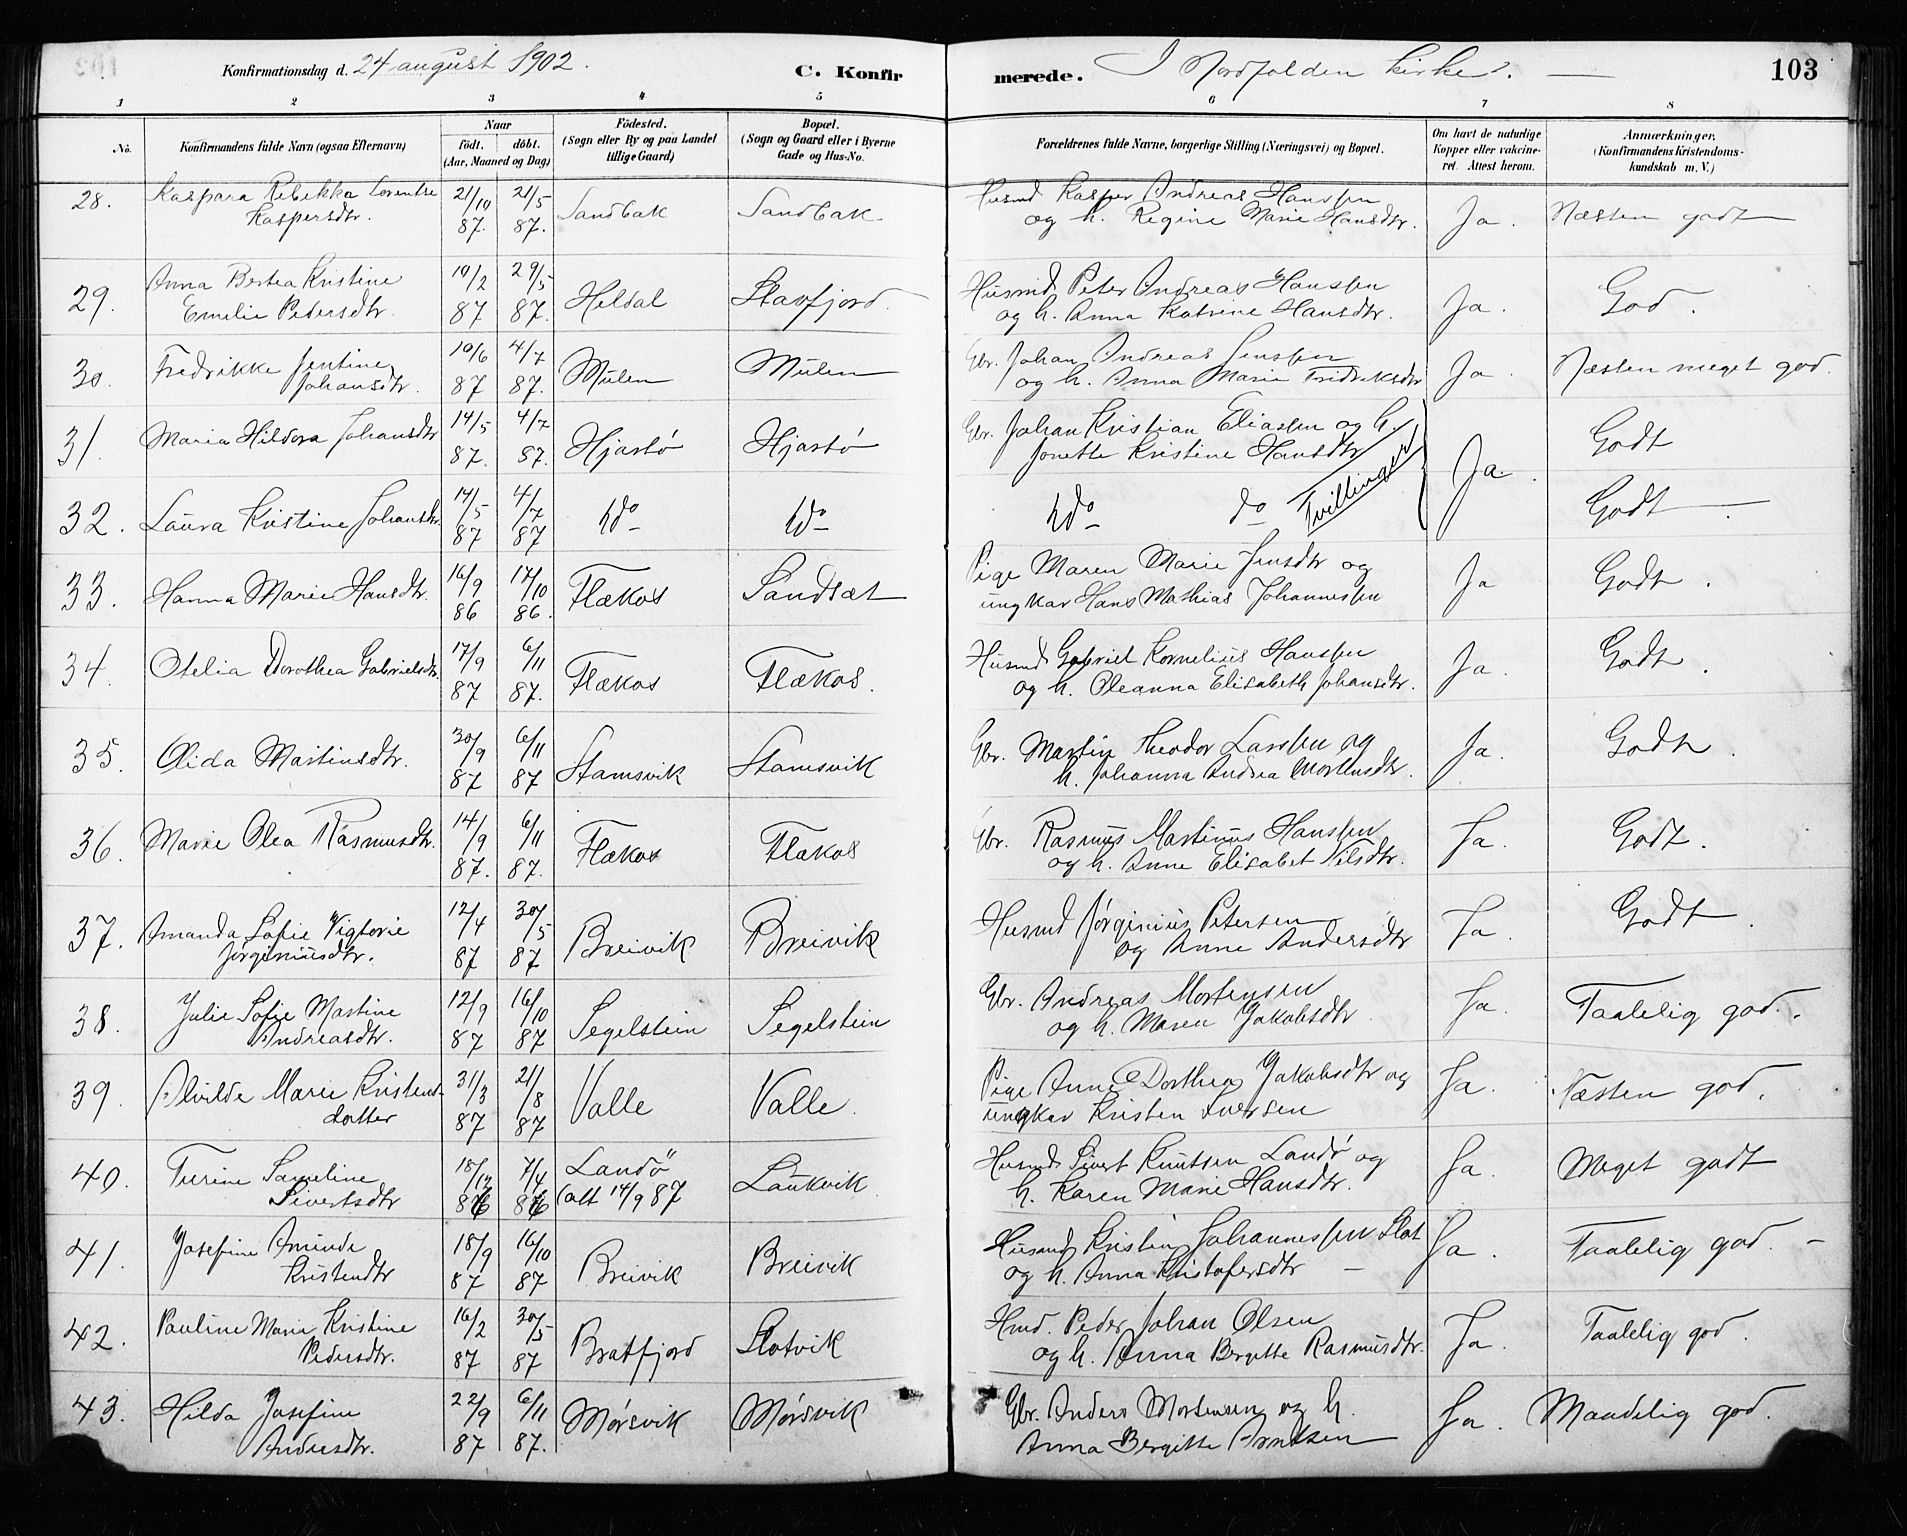 Konfirmationsdag d. 24 august 1902.
C. Konfirmerede.
I Nordfolden kirke.
103
1 2 3 4 5 6 7 8
No.
Konfirmandens fulde Navn (ogsaa Efternavn)
Naar
födt. döbt.
(Aar, Maaned og Dag)
Födested.
(Sogn eller By og paa Landet
tillige Gaard)
Bopæl.
(Sogn og Gaard eller i Byerne
Gade og Hus-No.
Forældrenes fulde Navne, borgerlige Stilling (Næringsvei) og Bopæl.
Om havt de naturlige
Kopper eller vakcine-
ret. Attest herom.
Anmærkninger.
(Konfirmandens Kristendoms-
kundskab m. V.)
28. Kaspara Rebekka Lorentse 21/10 21/5 Sandbak Sandbak Husmd Kasper Andreas Hanssen Ja. Næsten godt
Kaspersdtr. 87. 87. og h. Regine Marie Hansdtr.
29. Anna Bertea Kristine 19/2 29/5 Heldal Stavfjord Husmd Peter Andreas Hanssen Ja. God.
Emelie Pedersdtr. 87 87. og h. Anna Katrine Hansdtr.
30. Fredrikke Jentine 10/6 4/7 Mulen Mulen Gbr. Johan Andreas Jenssen Ja. Næsten meget god.
Johansdtr. 87 87. og h. Anna Marie Fridriksdtr
31. Maria Hildora Johansdtr 14/5 4/7 Hjartö Hjartö Gbr. Johan Kristian Eliassen og h. Ja. Godt
87. 87. Jonette Kristine Hansdtr
32. Laura Kristine Johansdtr. 14/5 4/7 do do do do Tvillinger Godt
87 87
33. Hanna Marie Hansdtr. 16/9 17/10 Flækos Sandsæt Pige Maren Marie Jensdtr og Ja Godt.
86 86. ungkar Hans Mathias Johannessen
34. Otelia Dorothea Gabrielsdtr. 17/9 6/11 Flækos Flækos. Husmd Gabriel Kornelius Hanssen Ja. Godt.
87 87. og h. Oleanna Elisabeth Johansdtr.
35. Olida Martinsdtr. 30/9 6/11 Stamsvik Stamsvik Gbr. Martin Theodor Larssen og Ja. Godt.
87 87 h. Johanna Andrea Mortensdtr.
36. Marie Olea Rasmusdtr. 14/9 6/11 Flækos Flækos Gbr. Rasmus Martinus Hanssen Ja. Godt.
87. 87. og h. Anne Elisabet Nilsdtr.
37. Amanda Sofie Vigtorie 12/4 30/5 Breivik Breivik Husmd Jörginius Petersen Ja. Godt.
Jörginiusdtr. 87 87 og Anne Andersdtr
38. Julie Sofie Martine 12/9 16/10 Segelstein Segelstein Gbr. Andreas Mortensen Ja. Taalelig god.
Andreasdtr. 87 87 og h. Maren Jakobsdtr
39. Alvilde Marie Kristens- 31/3 21/8 Valle Valle. Pige Anne Dorthea Jakobsdtr og Ja. Næsten god.
datter 87 87 ungkar Kristen Iversen
40. Turine Sameline 18/12 7/4 Landö Laukvik Husmd Sivert Knutsen Landö og Ja. Meget godt
Sivertsdtr 86 86 (alt 14/9 87 h. Karen Marie Hansdtr.
41. Josefine Aminde 18/9 16/10 Breivik Breivik Husmd Kristen Johannessen Slot Ja. Taalelig god.
Kristendtr 87 87 og h. Anna Kristofersdtr
42. Pauline Marie Kristine 16/2 30/5 Bratfjord Slotvik Hmd. Peder Johan Olsen Ja. Taalelig god.
Pedersdtr. 87 87 og h. Anna Bergitte Rasmusdtr.
43. Hilda Josefine 22/9 6/11 Mörsvik Mörsvik Gbr. Anders Mortensen og h. Ja. Maadelig god.
Andersdtr. 87 87. Anna Bergitte Arntsen